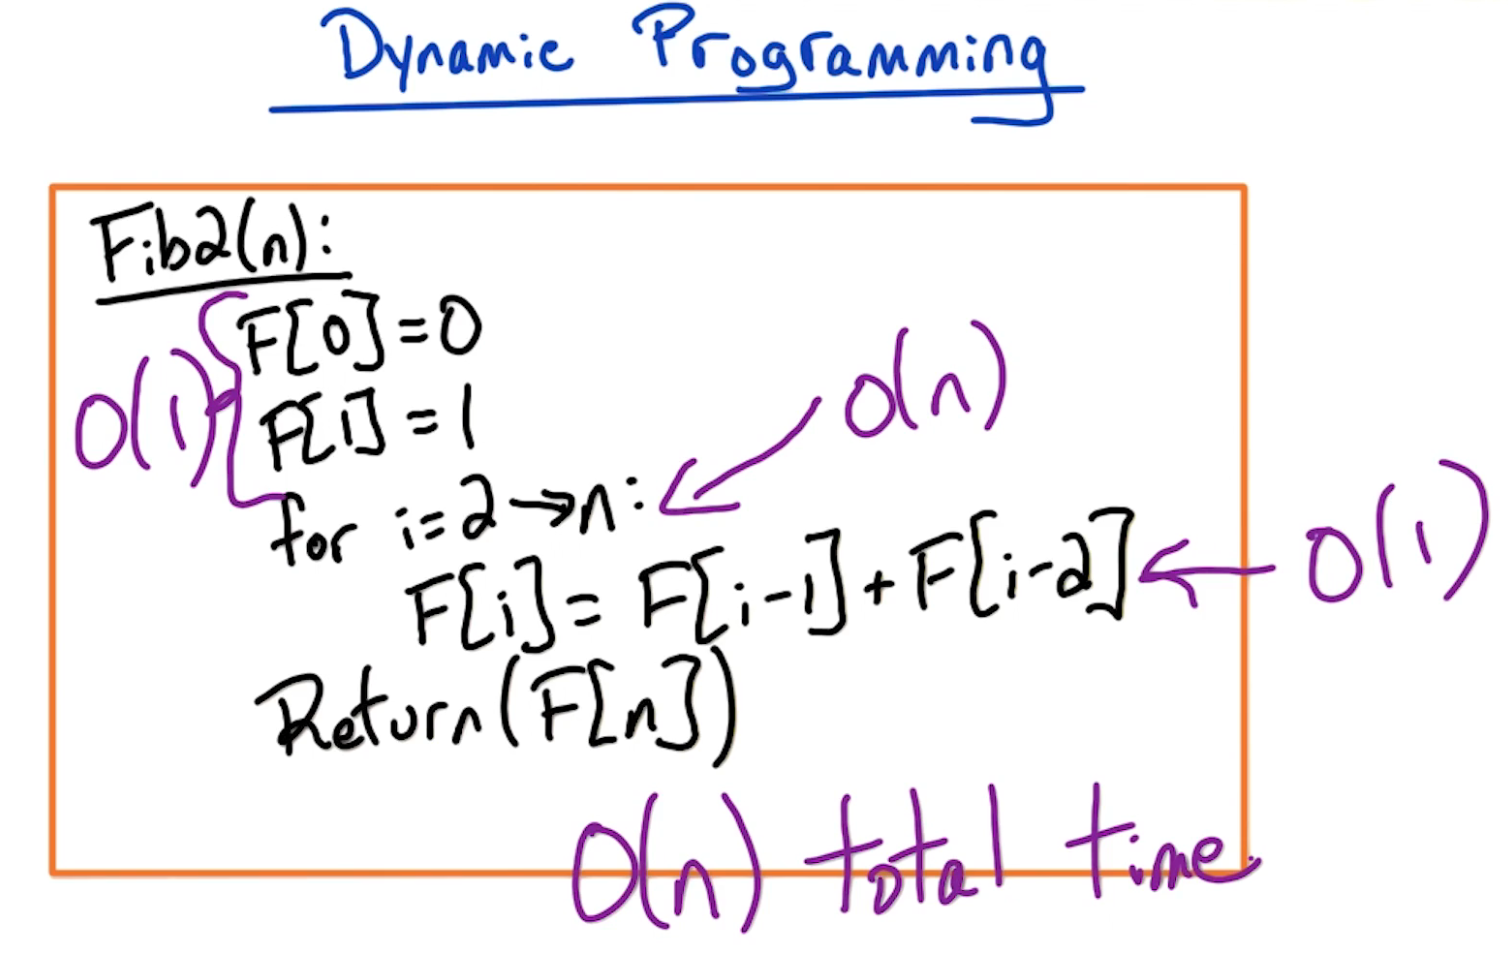 Dynamic Programming
Fib2(n):
F[0]=0
F[1]=1
O(1)
for i=2→n:
O(n)
F[i]=F[i-1]+F[i-2]
O(1)
Return(F[n])
O(n) total time